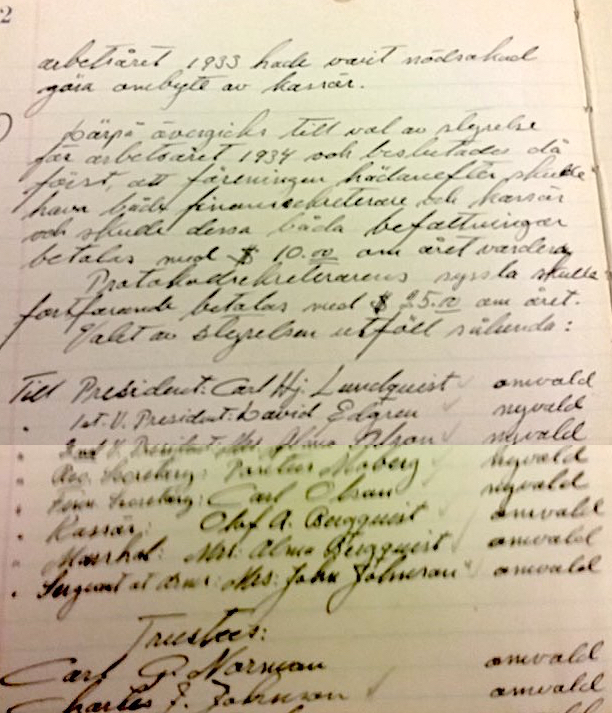 2
arbetsåret 1933 hade varit nödsakad
göra ombyte av kassör.
Därpå övergicks till val av styrelse
för arbetsåret 1934 och beslutades då
först, att föreningen hädanefter skulle
hava både finanssekreterare och kassör
och skulle dessa båda befattningar
betalas med $ 10.00 om året vardera
Protokollsekreterarens syssla skulle
fortfarande betalas med $ 25.00 om året.
Valet av styrelsen utföll sålunda:
Till President: Carl Hj. Lundquist omvald
" 1st. V. President: David Edgren nyvald
" 2nd V. President: Mrs. Alma Olson nyvald
" Rec. Secretary: Moberg nyvald
" Finan. Secretary: Carl Olson nyvald
" Kassör: Olof A. Bergquist omvald
" Marshal: Mrs. Alma Bergquist omvald
" Sergeant at arms: Mrs. John Johnson omvald
Trustees:
Carl G. Norman omvald
Charles J. Johnson omvald